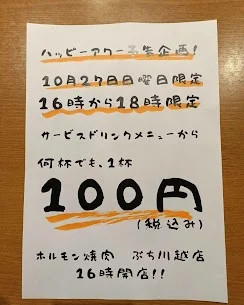 ハッピーアワー予告企画!
10月27日日曜日限定
16時から18時限定
サービスドリンクメニューから
何杯でも、1杯
100円
(税込み)
ホルモン焼肉 ぶち川越店
16時開店!!